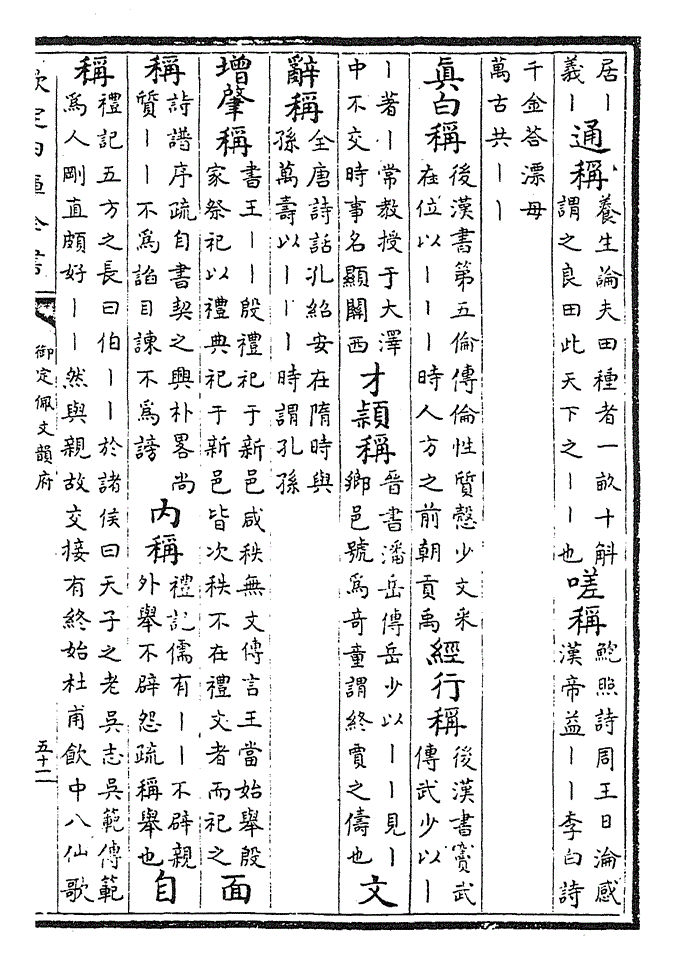 居丨
義丨
通稱
養生論夫田種者一畝十斛
謂之良田此天下之丨丨也
嗟稱
鮑照詩周王日淪惑
漢帝益丨丨李白詩
千金答漂母
萬古共丨丨
眞白稱
後漢書第五倫傳倫性質慤少文采
在位以丨丨丨時人方之前朝貢禹
經行稱
後漢書竇武
傳武少以丨
丨著丨常教授于大澤
中不交時事名顯關西
才頴稱
晉書潘岳傳岳少以丨丨見丨
鄉邑號爲竒童謂終賈之儔也
文
辭稱
全唐詩話孔紹安在隋時與
孫萬壽以丨丨丨時謂孔孫
增肇稱
書王丨丨殷禮祀于新邑咸秩無文傳言王當始舉殷
家祭祀以禮典祀于新邑皆次秩不在禮文者而祀之
面
稱
詩譜序疏自書契之興朴畧尚
質丨丨不爲謟目諫不爲謗
内稱
禮記儒有丨丨不辟親
外舉不辟怨疏稱舉也
自
稱
禮記五方之長曰伯丨丨於諸侯曰天子之老吳志吳範傳範
爲人剛直頗好丨丨然與親故交接有終始杜甫飲中八仙歌
欽定四庫全書
御定佩文韻府
五十二